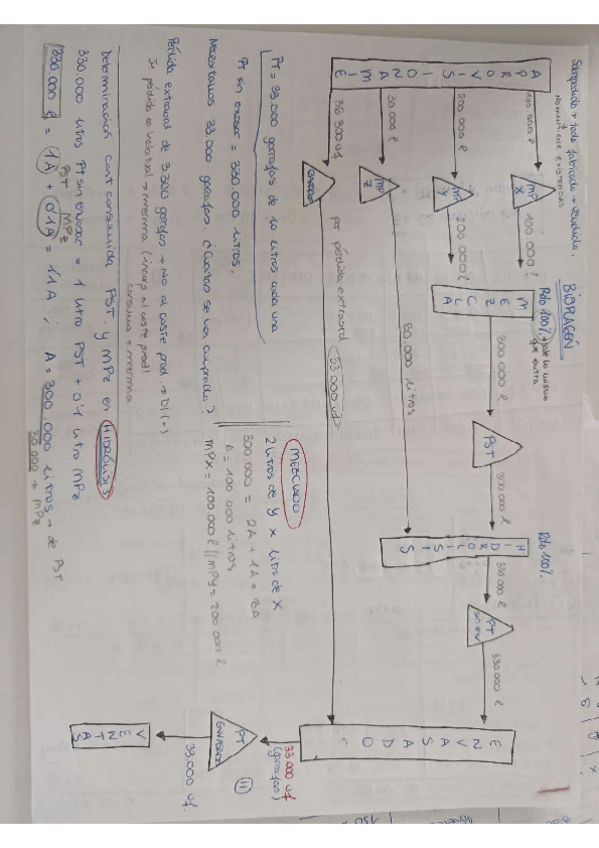 Sobrepedido → todo fabricado → vendido.
No mantiene existencias
BIOPLAGÉN
Rdto 100% → sale lo mismo
que entra
Rdto 100%.
APROVISIONAMIE
100.000 l
MP
X
100.000 l
200.000 l
MP
Y
200.000 l
30.000 l
MP
Z
30.000 litros
36.300 uf
por pérdida extraord
33.000 uf
MEZCLA
300.000 l
PST
300.000 l
HIDROLISIS
330.000 l
PT
330.000 l
ENVASADO
33.000 uf
(garrafas)
PT
ENVASADO
33.000 uf.
VENTAS
PT = 33.000 garrafas de 10 litros cada una
PT sin envasar = 330.000 litros.
Necesitamos 33.000 garrafas. ¿Cuántas se van comprado?
Pérdida extraord de 3.300 garrafas → No al coste prod. → DI (-)
Si pérdida es habitual → merma (incorp al coste prod)
MEZCLADO
2 litros de Y x litro de X
300.000 = 2A + 1A = 3A
A = 100.000 litros
MPX = 100.000 l // MPY = 200.000 l
Determinación cant consumida PST y MPZ en HIDRÓLISIS
330.000 litros PT sin envasar = 1 litro PST + 0'1 litro MPZ
330.000 l = 1A + 0'1A = 1'1A ; A = 300.000 litros → de PST
PST MPZ
30.000 → MPZ